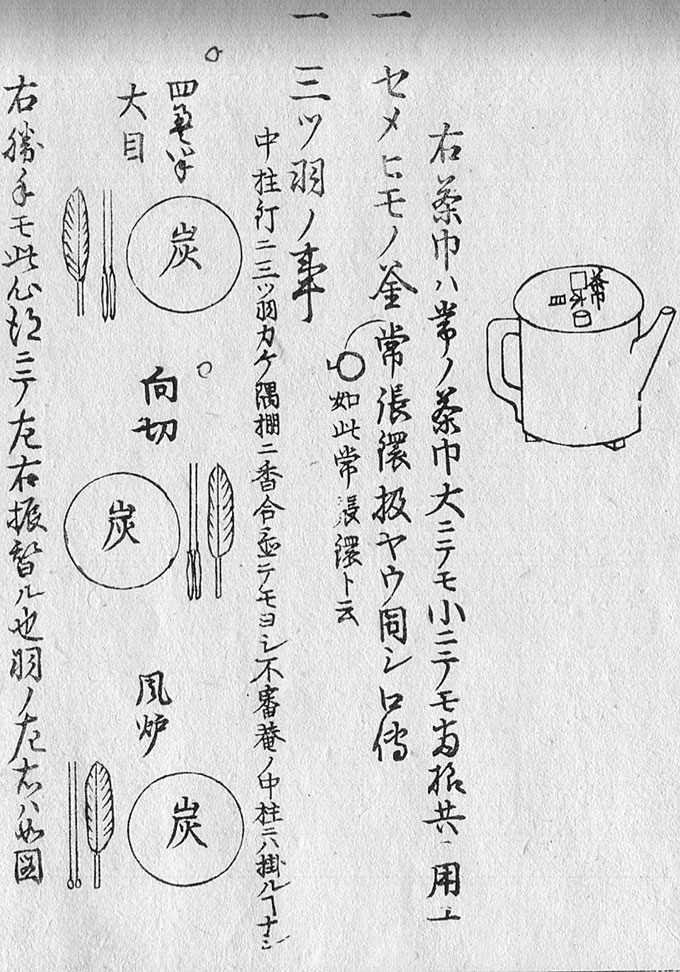 茶巾
口
水
目
右茶巾ハ常ノ茶巾大ニテモ小ニテモ両様共ニ用ユ
一 セメヒモノ釜常張鐶扱ヤウ同シ口傳
如此常張鐶ト云
一 三ツ羽ノ事
中柱釘ニ三ツ羽カケ隅棚ニ香合置テモヨシ不審菴ノ中柱ニハ掛ルヿナシ
四畳半
大目
炭
向切
炭
風炉
炭
右勝手モ此心得ニテ左右振替ル也羽ノ左右ハ如図